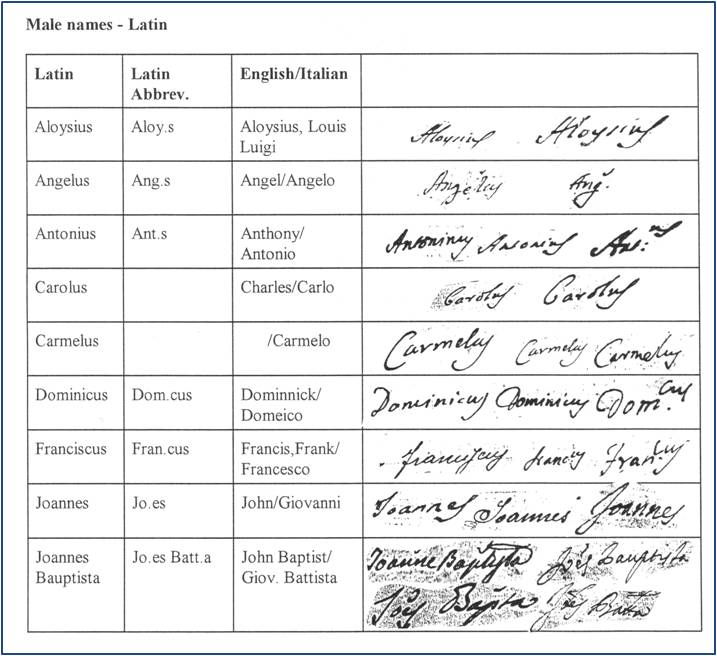 Male names - Latin
Latin
Latin
Abbrev.
English/Italian
Aloysius
Aloy.s
Aloysius, Louis
Luigi
Aloysius Aloysius
Angelus
Ang.s
Angel/Angelo
Angelus Ang.
Antonius
Ant.s
Anthony/
Antonio
Antoninus Antonius Ant:nus
Carolus
Charles/Carlo
Carolus Carolus
Carmelus
/Carmelo
Carmelus Carmelus Carmelus
Dominicus
Dom.cus
Dominnick/
Domeico
Dominicus Dominicus Dom.cus
Franciscus
Fran.cus
Francis,Frank/
Francesco
Fran.cus
Joannes
Jo.es
John/Giovanni
Joannes Joannes Joannes
Joannes
Bauptista
Jo.es Batt.a
John Baptist/
Giov. Battista
Joanne Baptista Joes Bauptista
Joes Bapta Joes Batta